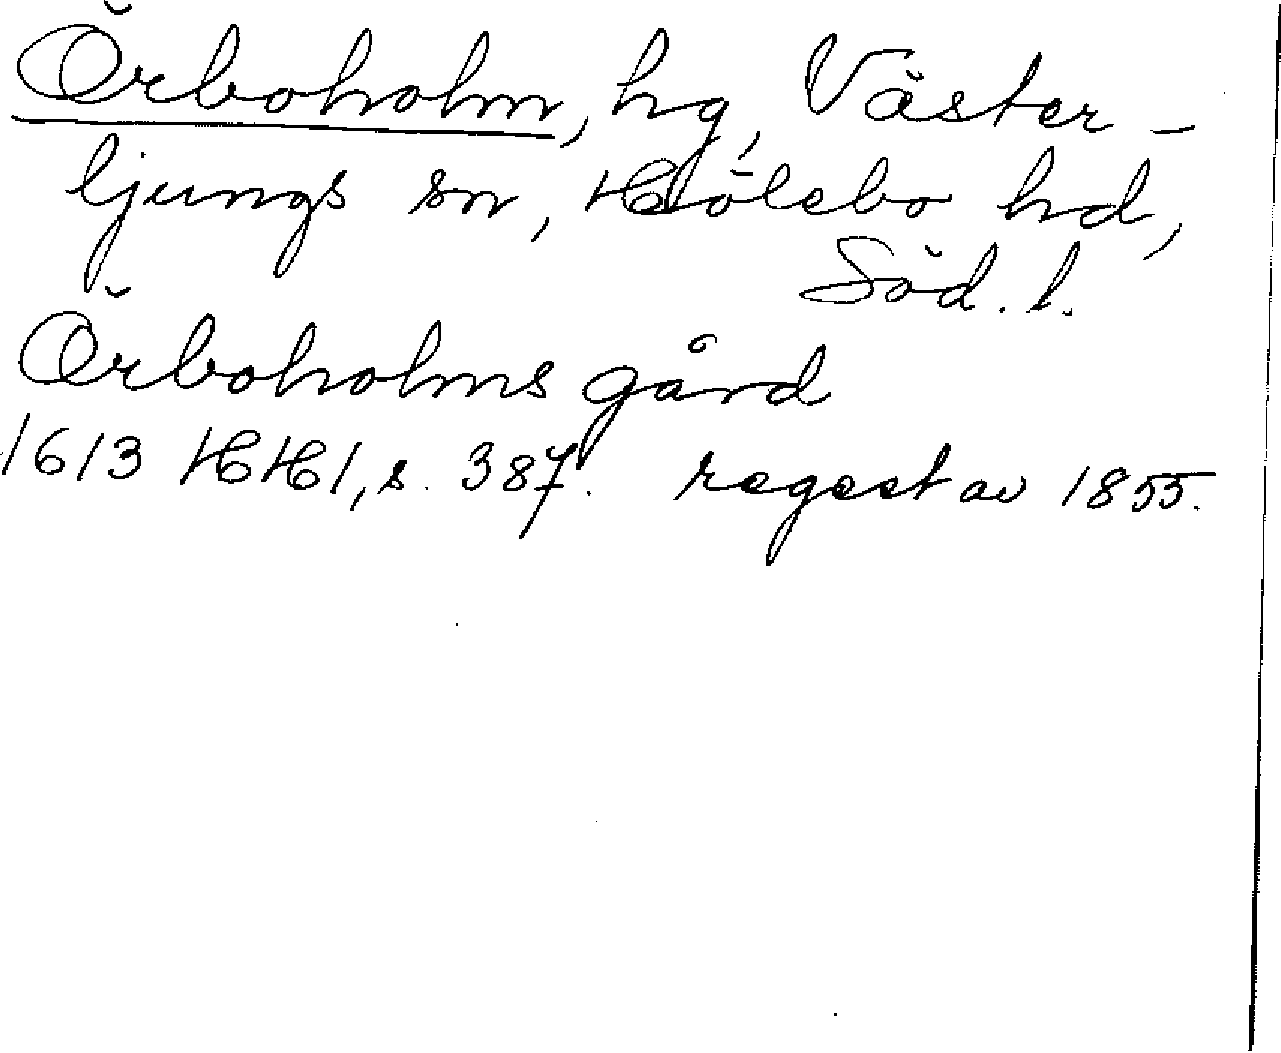 Örboholm, hg, Väster-
ljungs sn, Hölebo hd,
Söd. l.
Örboholms gård
1613 HH1, s. 387. regest av 1855.